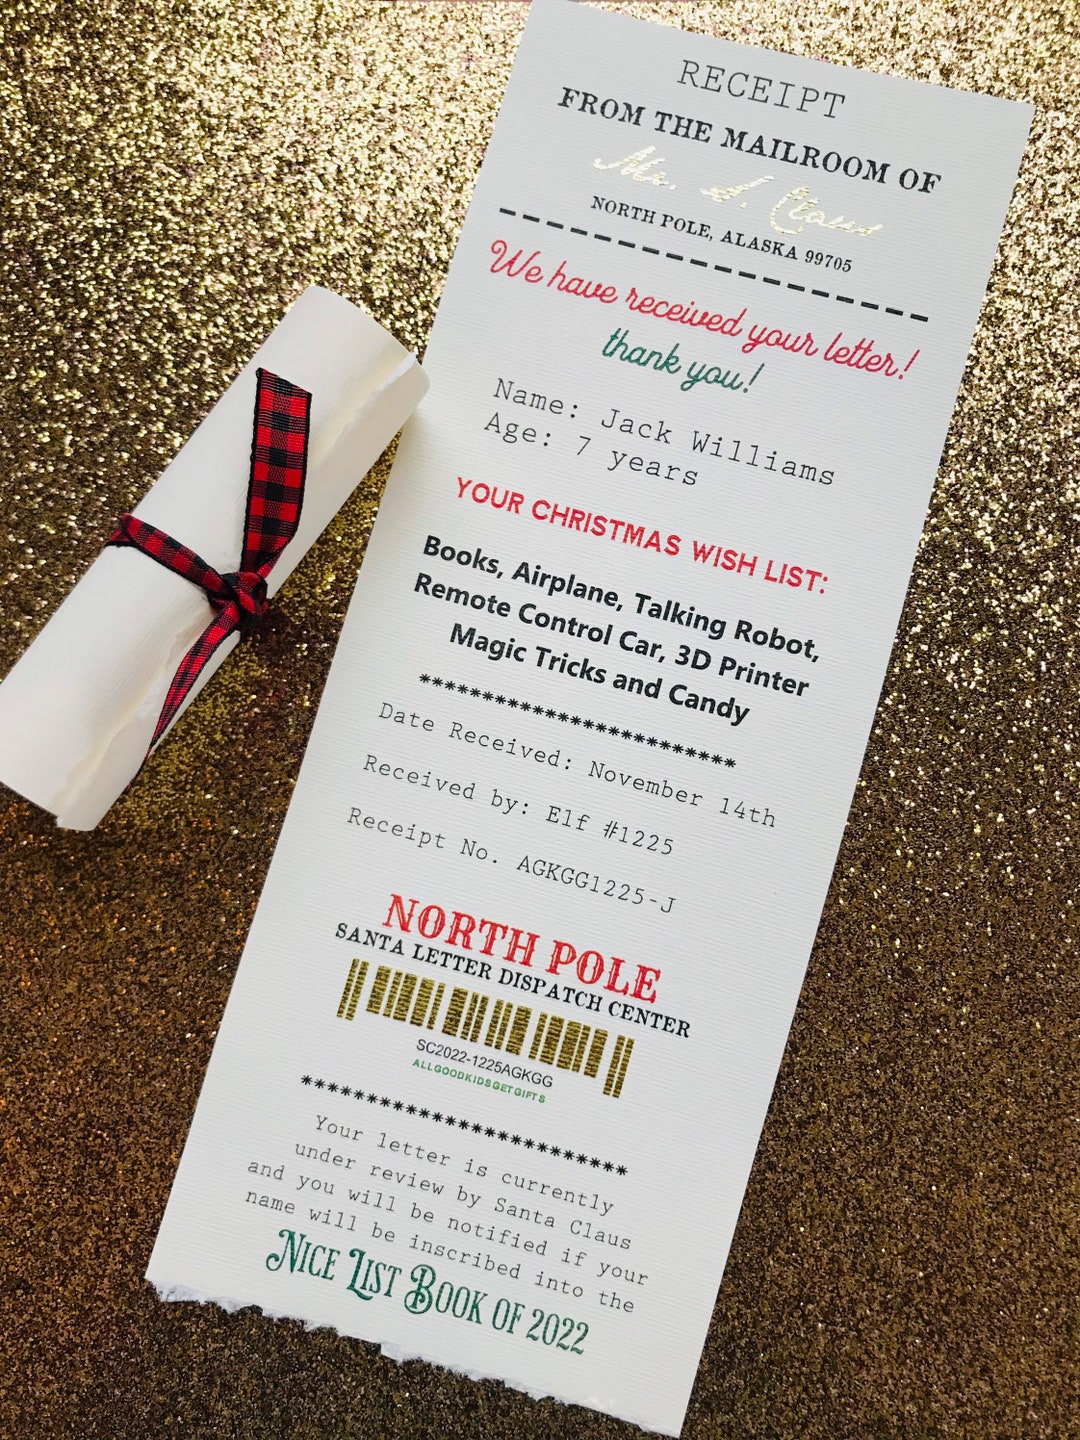 RECEIPT
FROM THE MAILROOM OF
Mr. S. Claus
NORTH POLE, ALASKA 99705
We have received your letter!
thank you!
Name: Jack Williams
Age: 7 years
YOUR CHRISTMAS WISH LIST:
Books, Airplane, Talking Robot,
Remote Control Car, 3D Printer
Magic Tricks and Candy
************************
Date Received: November 14th
Received by: Elf #1225
Receipt No. AGKGG1225-J
NORTH POLE
SANTA LETTER DISPATCH CENTER
SC2022-1225AGKGG
ALLGOODKIDSGETGIFTS
************************
Your letter is currently
under review by Santa Claus
and you will be notified if your
name will be inscribed into the
NICE LIST BOOK OF 2022